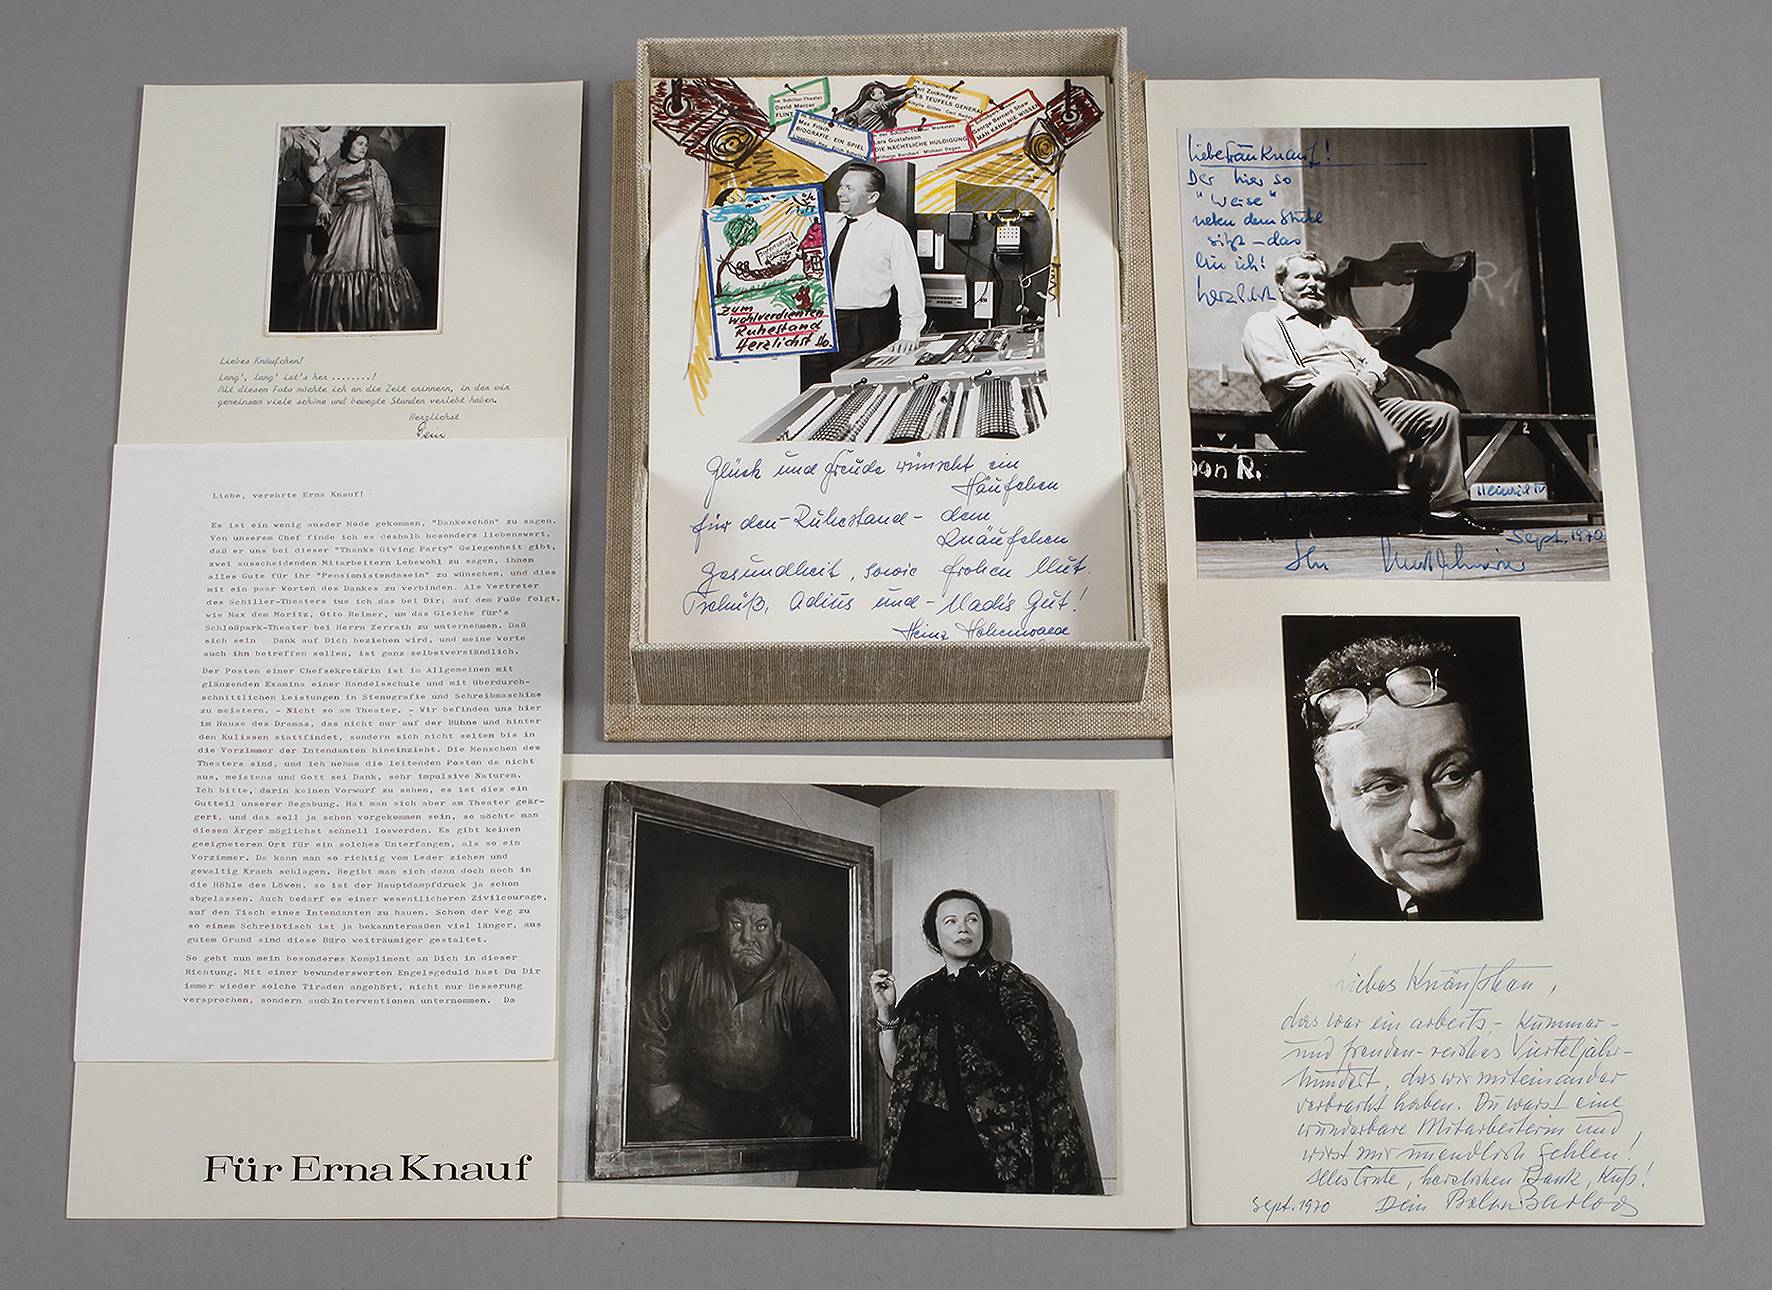 Liebes Knäufchen!
Lang', lang' ist's her ........!
Mit diesem Foto möchte ich an die Zeit erinnern, in der wir
gemeinsam viele schöne und bewegte Stunden verlebt haben.
Herzlichst
Liebe, verehrte Erna Knauf!
Es ist ein wenig ausder Mode gekommen, "Dankeschön" zu sagen.
Von unserem Chef finde ich es deshalb besonders liebenswert,
daß er uns bei dieser "Thanks Giving Party" Gelegenheit gibt,
zwei ausscheidenden Mitarbeitern Lebewohl zu sagen, ihnen
alles Gute für ihr "Pensionistendasein" zu wünschen, und dies
mit ein paar Worten des Dankes zu verbinden. Als Vertreter
des Schiller-Theaters tue ich das bei Dir; auf dem Fuße folgt,
wie Max dem Moritz, Otto Reimer, um das Gleiche für's
Schloßpark-Theater bei Herrn Zerrath zu unternehmen. Daß
sich sein Dank auf Dich beziehen wird, und meine Worte
auch ihn betreffen sollen, ist ganz selbstverständlich.
Der Posten einer Chefsekretärin ist im Allgemeinen mit
glänzenden Examina einer Handelsschule und mit überdurch-
schnittlichen Leistungen in Stenografie und Schreibmaschine
zu meistern. - Nicht so am Theater. - Wir befinden uns hier
im Hause des Dramas, das nicht nur auf der Bühne und hinter
den Kulissen stattfindet, sondern sich nicht selten bis in
die Vorzimmer der Intendanten hineinzieht. Die Menschen des
Theaters sind, und ich nehme die leitenden Posten da nicht
aus, meistens und Gott sei Dank, sehr impulsive Naturen.
Ich bitte, darin keinen Vorwurf zu sehen, es ist dies ein
Gutteil unserer Begabung. Hat man sich aber am Theater geär-
gert, und das soll ja schon vorgekommen sein, so möchte man
diesen Ärger möglichst schnell loswerden. Es gibt keinen
geeigneteren Ort für ein solches Unterfangen, als so ein
Vorzimmer. Da kann man so richtig vom Leder ziehen und
gewaltig Krach schlagen. Begibt man sich dann doch noch in
die Höhle des Löwen, so ist der Hauptdampfdruck ja schon
abgelassen. Auch bedarf es einer wesentlicheren Zivilcourage,
auf den Tisch eines Intendanten zu hauen. Schon der Weg zu
so einem Schreibtisch ist ja bekanntermaßen viel länger, aus
gutem Grund sind diese Büro weiträumiger gestaltet.
So geht nun mein besonderes Kompliment an Dich in dieser
Richtung. Mit einer bewunderswerten Engelsgeduld hast Du Dir
immer wieder solche Tiraden angehört, nicht nur Besserung
versprochen, sondern auch Interventionen unternommen. Da
Für Erna Knauf
Im Schiller-Theater
David Mercer
FLINT
Max Frisch
BIOGRAFIE: EIN SPIEL
Carl Zuckmayer
DES TEUFELS GENERAL
der Schiller-Theater Werkstatt
Lars Gustafsson
DIE NÄCHTLICHE HULDIGUNG
Wilhelm Borchert Michael Degen
George Bernard Shaw
MAN KANN NIE WISSEN
Zum
wohlverdienten
Ruhestand
Herzlichst
Glück und Freude wünscht ein
Häufchen
für den - Ruhestand - dem
Knäufchen
Gesundheit, sowie frohen Mut.
Tschüß, Adius und - Mach's Gut!
Heinz
Liebe Frau Knauf!
Der hier so
"Weise"
neben dem Stuhl
sitzt - das
bin ich!
Herzlichst
on R.
Heinrich IV
Sept. 1970
Ihr
Liebes Knäufchen,
das war ein arbeits-, Kummer-
und freuden-reiches Vierteljahr-
hundert, das wir miteinander
verbracht haben. Du warst eine
wunderbare Mitarbeiterin und
wirst mir unendlich fehlen!
Alles Gute, herzlichen Dank, Kuß!
Sept. 1970 Dein Boleslaw Barlog